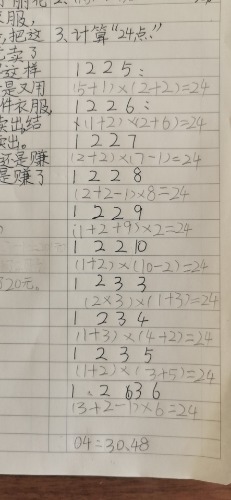 服，
，把这
卖了
这样
是又用
件衣服，
卖出,结
卖出。
还是赚
是赚了
520元。
3.计算“24点.”
1 2 2 5：
(5+1)×(2+2)=24
1 2 2 6：
(1+2)×(2+6)=24
1 2 2 7
(2+2)×(7-1)=24
1 2 2 8
(2+2-1)×8=24
1 2 2 9
(1+2+9)×2=24
1 2 2 10
(1+2)×(10-2)=24
1 2 3 3
(2×3)×(1+3)=24
1 2 3 4
(1+3)×(4+2)=24
1 2 3 5
(1+2)×(3+5)=24
1 . 2 6 3 6
(3+2-1)×6=24
04=30.48